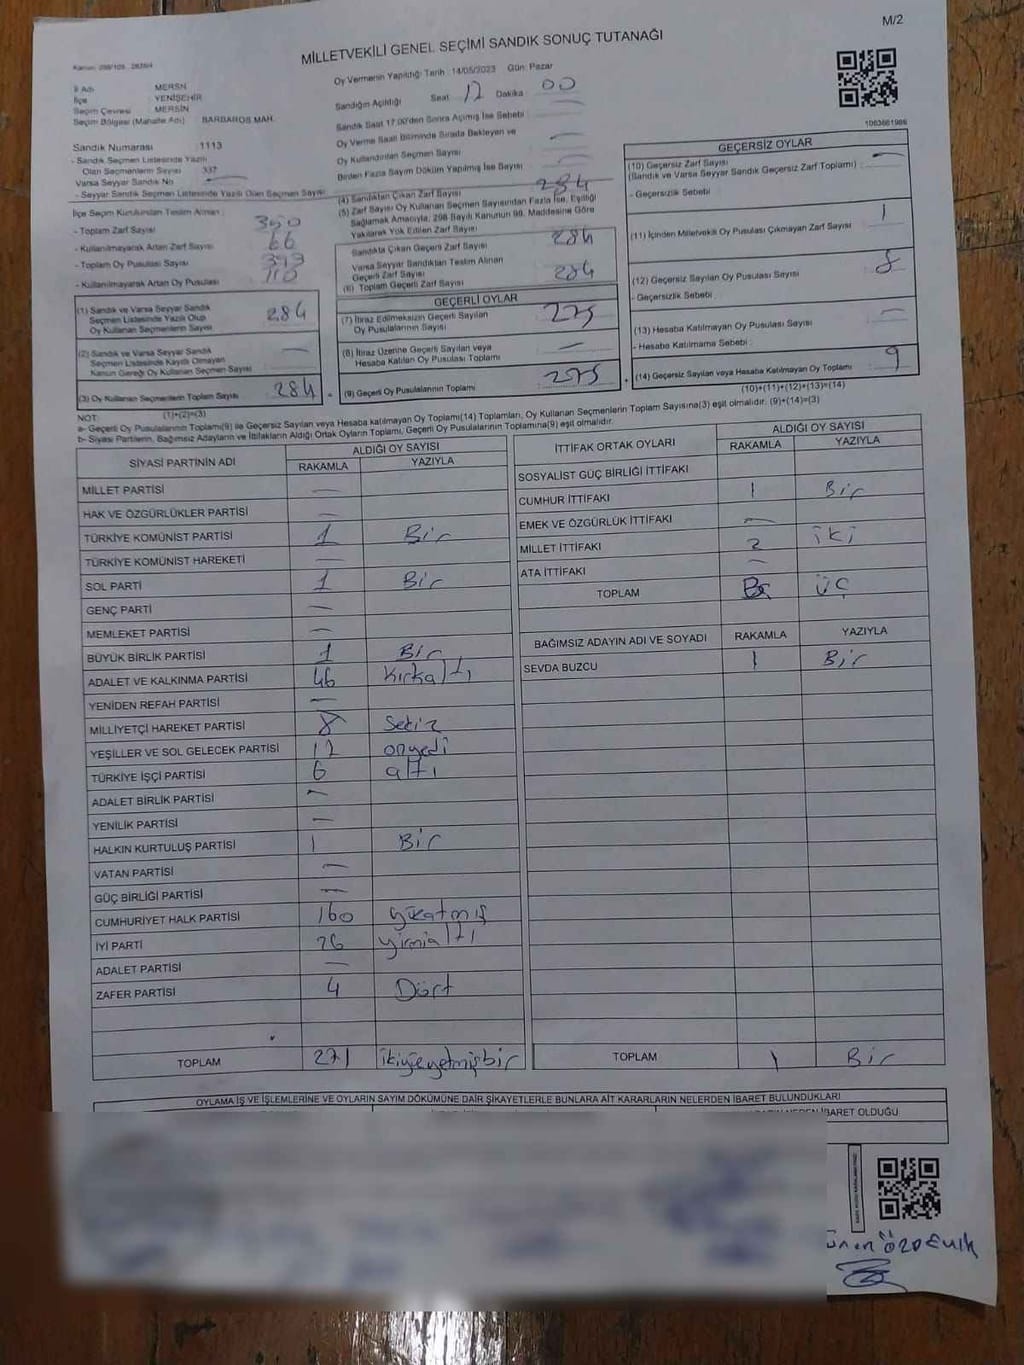 M/2
MİLLETVEKİLİ GENEL SEÇİMİ SANDIK SONUÇ TUTANAĞI
Oy Vermenin Yapıldığı Tarih : 14/05/2023 Gün: Pazar
İl Adı MERSİN
İlçe YENİŞEHİR
Seçim Çevresi MERSİN
Seçim Bölgesi (Mahalle Adı) BARBAROS MAH.
Sandığın Açıldığı Saat 17 Dakika 00
Sandık Saat 17.00'den Sonra Açılmış İse Sebebi
Oy Verme Saati Bitiminde Sırada Bekleyen ve
Oy Kullandırılan Seçmen Sayısı
Birden Fazla Sayım Döküm Yapılmış İse Sayısı
1063661986
Sandık Numarası : 1113
- Sandık Seçmen Listesinde Yazılı
Olan Seçmenlerin Sayısı 337
Varsa Seyyar Sandık No
- Seyyar Sandık Seçmen Listesinde Yazılı Olan Seçmen Sayısı
İlçe Seçim Kurulundan Teslim Alınan :
- Toplam Zarf Sayısı 350
- Kullanılmayarak Artan Zarf Sayısı 66
- Toplam Oy Pusulası Sayısı
- Kullanılmayarak Artan Oy Pusulası 110
(1) Sandık ve Varsa Seyyar Sandık
Seçmen Listesinde Yazılı Olup
Oy Kullanan Seçmenlerin Sayısı 284
(2) Sandık ve Varsa Seyyar Sandık
Seçmen Listesinde Kayıtlı Olmayan
Kanun Gereği Oy Kullanan Seçmen Sayısı —
(3) Oy Kullanan Seçmenlerin Toplam Sayısı 284
(1)+(2)=(3)
(4) Sandıktan Çıkan Zarf Sayısı 284
(5) Zarf Sayısı Oy Kullanan Seçmen Sayısından Fazla İse, Eşitliği
Sağlamak Amacıyla, 298 Sayılı Kanunun 98. Maddesine Göre
Yakılarak Yok Edilen Zarf Sayısı
Sandıkta Çıkan Geçerli Zarf Sayısı 284
Varsa Seyyar Sandıktan Teslim Alınan
Geçerli Zarf Sayısı
(6) Toplam Geçerli Zarf Sayısı 284
GEÇERLİ OYLAR
(7) İtiraz Edilmeksizin Geçerli Sayılan
Oy Pusulalarının Sayısı 275
(8) İtiraz Üzerine Geçerli Sayılan veya
Hesaba Katılan Oy Pusulası Toplamı —
(9) Geçerli Oy Pusulalarının Toplamı 275
GEÇERSİZ OYLAR
(10) Geçersiz Zarf Sayısı
(Sandık ve Varsa Seyyar Sandık Geçersiz Zarf Toplamı) : —
- Geçersizlik Sebebi
(11) İçinden Milletvekili Oy Pusulası Çıkmayan Zarf Sayısı 1
(12) Geçersiz Sayılan Oy Pusulası Sayısı 8
- Geçersizlik Sebebi :
(13) Hesaba Katılmayan Oy Pusulası Sayısı —
- Hesaba Katılmama Sebebi :
(14) Geçersiz Sayılan veya Hesaba Katılmayan Oy Toplamı 9
(10)+(11)+(12)+(13)=(14)
NOT:
a- Geçerli Oy Pusulalarının Toplamı(9) ile Geçersiz Sayılan veya Hesaba katılmayan Oy Toplamı(14) Toplamları, Oy Kullanan Seçmenlerin Toplam Sayısına(3) eşit olmalıdır. (9)+(14)=(3)
b- Siyasi Partilerin, Bağımsız Adayların ve İttifakların Aldığı Ortak Oyların Toplamı, Geçerli Oy Pusulalarının Toplamına(9) eşit olmalıdır.
SİYASİ PARTİNİN ADI ALDIĞI OY SAYISI
RAKAMLA YAZIYLA
MİLLET PARTİSİ —
HAK VE ÖZGÜRLÜKLER PARTİSİ —
TÜRKİYE KOMÜNİST PARTİSİ 1 Bir
TÜRKİYE KOMÜNİST HAREKETİ —
SOL PARTİ 1 Bir
GENÇ PARTİ —
MEMLEKET PARTİSİ —
BÜYÜK BİRLİK PARTİSİ 1 Bir
ADALET VE KALKINMA PARTİSİ 46 Kırkaltı
YENİDEN REFAH PARTİSİ —
MİLLİYETÇİ HAREKET PARTİSİ 8 Sekiz
YEŞİLLER VE SOL GELECEK PARTİSİ 17 onyedi
TÜRKİYE İŞÇİ PARTİSİ 6 altı
ADALET BİRLİK PARTİSİ —
YENİLİK PARTİSİ —
HALKIN KURTULUŞ PARTİSİ 1 Bir
VATAN PARTİSİ —
GÜÇ BİRLİĞİ PARTİSİ —
CUMHURİYET HALK PARTİSİ 160 yüzatmış
İYİ PARTİ 26 yirmialtı
ADALET PARTİSİ —
ZAFER PARTİSİ 4 Dört
TOPLAM 271 ikiyüzyetmişbir
İTTİFAK ORTAK OYLARI ALDIĞI OY SAYISI
RAKAMLA YAZIYLA
SOSYALİST GÜÇ BİRLİĞİ İTTİFAKI
CUMHUR İTTİFAKI 1 Bir
EMEK VE ÖZGÜRLÜK İTTİFAKI —
MİLLET İTTİFAKI 2 iki
ATA İTTİFAKI —
TOPLAM ÜÇ
BAĞIMSIZ ADAYIN ADI VE SOYADI RAKAMLA YAZIYLA
SEVDA BUZCU 1 Bir
TOPLAM 1 Bir
OYLAMA İŞ VE İŞLEMLERİNE VE OYLARIN SAYIM DÖKÜMÜNE DAİR ŞİKAYETLERLE BUNLARA AİT KARARLARIN NELERDEN İBARET BULUNDUKLARI
İBARET OLDUĞU